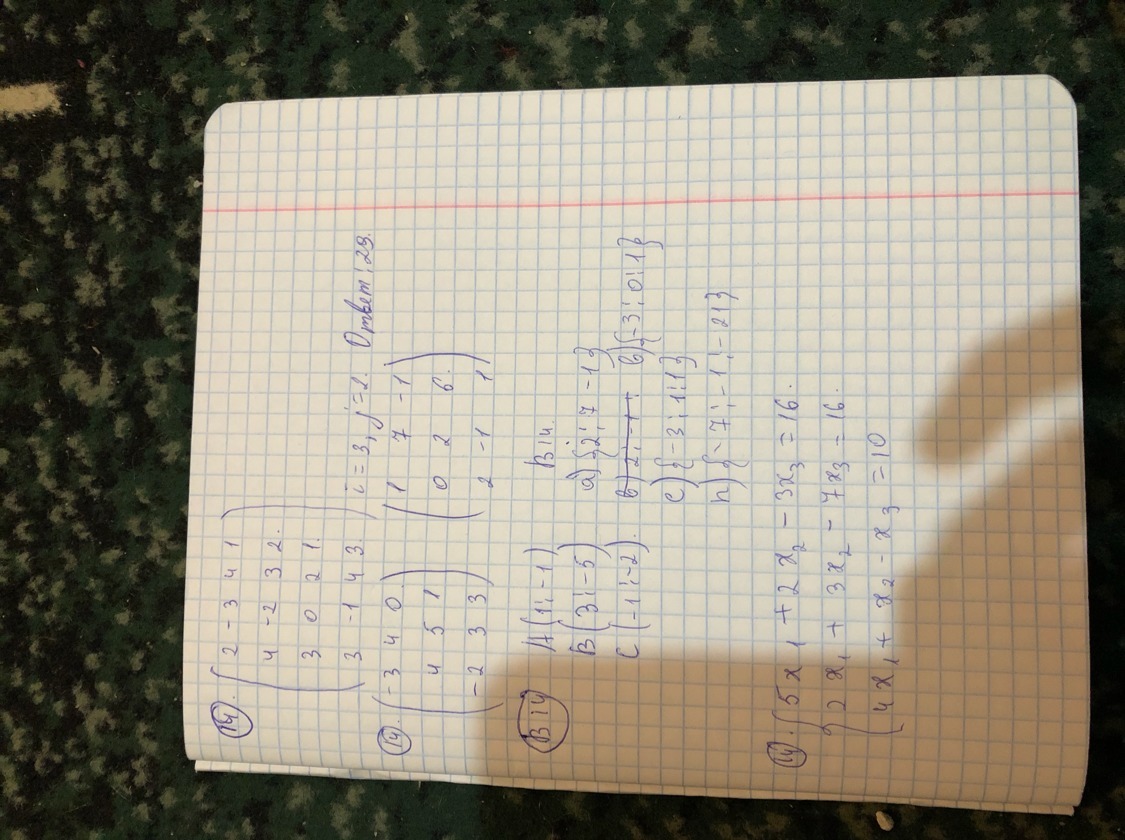 14. ( 2 -3 4 1
4 -2 3 2.
3 0 2 1.
3 -1 4 3. ) i=3, j=2. Ответ: 29.
14. ( -3 4 0
4 5 1
-2 3 3 )
( 1 7 -1
0 2 6.
2 -1 1 )
В 14 A(1; -1)
B(3; -5)
C(-1; -2).
В 14.
a) {2; 7 -1}
b) 2; -1; b) {-3; 0; 1}
c) {-3; 1; 1}
h) {-7; -1; -21}
14. { 5x1 + 2x2 - 3x3 = 16.
2x1 + 3x2 - 7x3 = 16.
4x1 + x2 - x3 = 10